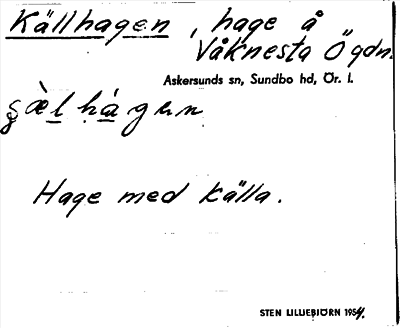 Källhagen, hage å
Våknesta Ögdn.
Askersunds sn, Sundbo hd, Ör. l.
Hage med källa.
STEN LILLIEBJÖRN 1954.